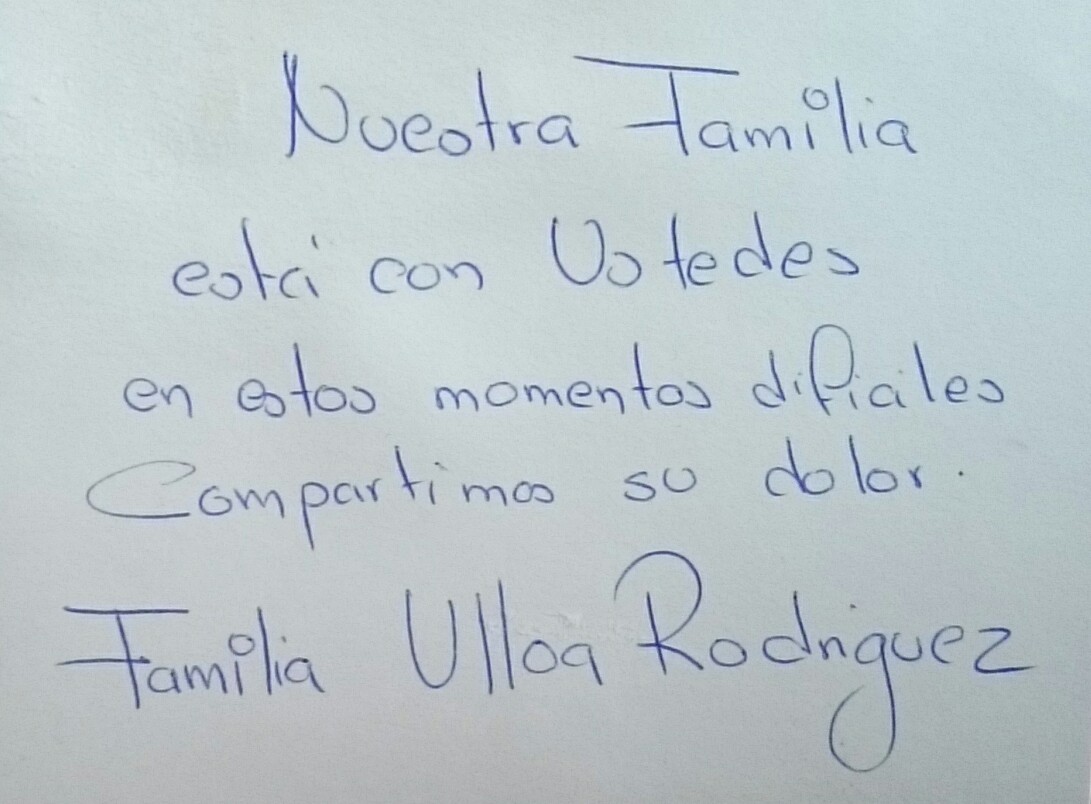 Nuestra Familia
está con Ustedes
en estos momentos difíciles
Compartimos su dolor.
Familia Ulloa Rodriguez